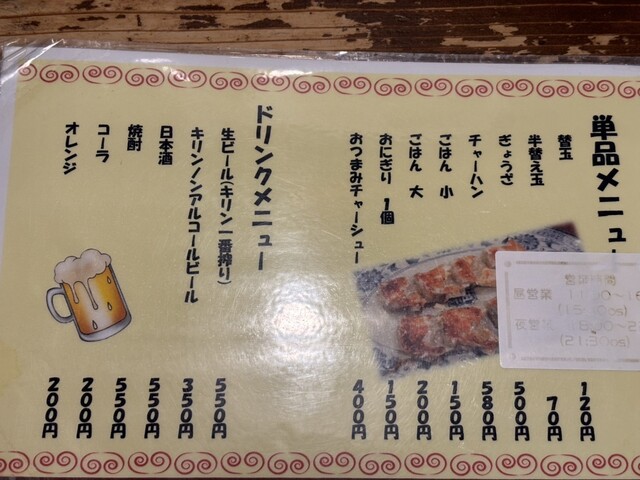 単品メニュー
替玉 120円
半替え玉 70円
ぎょうざ 500円
チャーハン 580円
ごはん 小 150円
ごはん 大 200円
おにぎり 1個 150円
おつまみチャーシュー 400円
ドリンクメニュー
生ビール(キリン一番搾り) 550円
キリンノンアルコールビール 350円
日本酒 550円
焼酎 550円
コーラ 200円
オレンジ 200円
営業時間
昼営業
夜営業